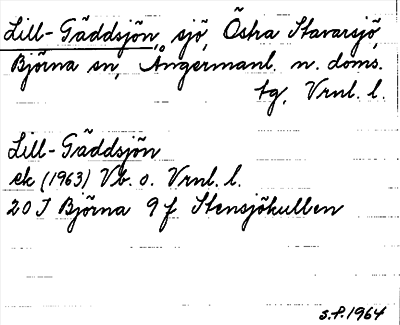 Lill-Gäddsjön, sjö, Östra Stavarsjö,
Björna sn, Ångermanl. n. doms.
tg, Vrnl. l.
Lill-Gäddsjön
ek (1963) Vb. o. Vrnl. l.
20 J Björna 9 f Stensjökullen
S.P. 1964